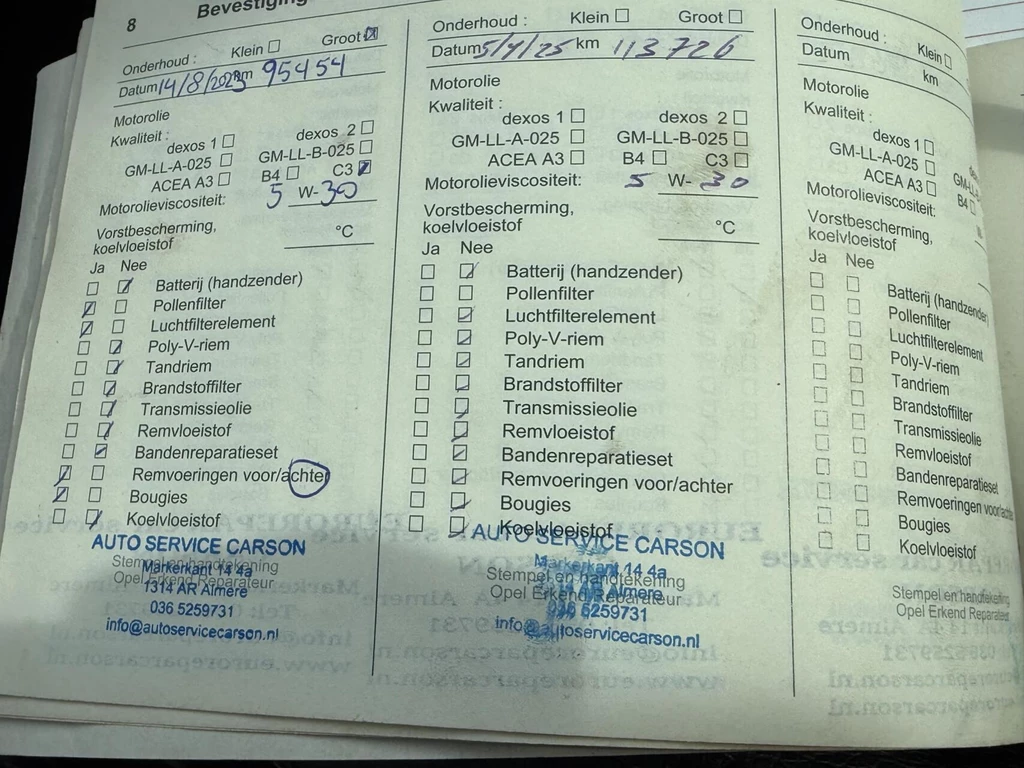 8
Bevestiging
Onderhoud : Klein Groot
Datum 14/8/2023 km 95454
Motorolie
Kwaliteit :
dexos 1 dexos 2
GM-LL-A-025 GM-LL-B-025
ACEA A3 B4 C3
Motorolieviscositeit: 5 W-30
Vorstbescherming,
koelvloeistof °C
Ja Nee
Batterij (handzender)
Pollenfilter
Luchtfilterelement
Poly-V-riem
Tandriem
Brandstoffilter
Transmissieolie
Remvloeistof
Bandenreparatieset
Remvoeringen voor/achter
Bougies
Koelvloeistof
AUTO SERVICE CARSON
Stempel en handtekening
Markerkant 14 4a
Opel Erkend Reparateur
1314 AR Almere
036 5259731
info@autoservicecarson.nl
Onderhoud : Klein Groot
Datum 5/4/25 km 113726
Motorolie
Kwaliteit :
dexos 1 dexos 2
GM-LL-A-025 GM-LL-B-025
ACEA A3 B4 C3
Motorolieviscositeit: 5 W-30
Vorstbescherming,
koelvloeistof °C
Ja Nee
Batterij (handzender)
Pollenfilter
Luchtfilterelement
Poly-V-riem
Tandriem
Brandstoffilter
Transmissieolie
Remvloeistof
Bandenreparatieset
Remvoeringen voor/achter
Bougies
Koelvloeistof
AUTO SERVICE CARSON
Markerkant 14 4a
Stempel en handtekening
Almere
Opel Erkend Reparateur
036 5259731
info@autoservicecarson.nl
Onderhoud : Klein
Datum km
Motorolie
Kwaliteit :
dexos 1
GM-LL-A-025 GM-LL
ACEA A3 B4
Motorolieviscositeit:
Vorstbescherming,
koelvloeistof
Ja Nee
Batterij (handzender)
Pollenfilter
Luchtfilterelement
Poly-V-riem
Tandriem
Brandstoffilter
Transmissieolie
Remvloeistof
Bandenreparatieset
Remvoeringen voor/achter
Bougies
Koelvloeistof
Stempel en handtekening
Opel Erkend Reparateur